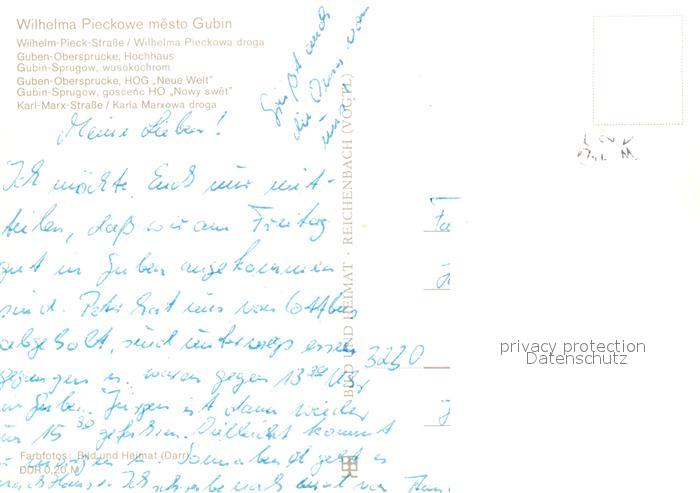 Wilhelma Pieckowe město Gubin
Wilhelm-Pieck-Straße / Wilhelma Pieckowa droga
Guben-Obersprucke, Hochhaus
Gubin-Sprugow, wusokochrom
Guben-Obersprucke, HOG „Neue Welt"
Gubin-Sprugow, gosćeńc HO „Nowy swět"
Karl-Marx-Straße / Karla Marxowa droga
Grüßt auch
die Oma von
uns
Meine Lieben!
Ich möchte Euch nur mit-
teilen, daß wir am Freitag
gut in Guben angekommen
sind. Peter hat uns von Cottbus
abgeholt, sind unterwegs essen
gegangen u. waren gegen 13 30 Uhr
in Guben. Jürgen ist dann wieder
um 15 30 gefahren. Vielleicht kommt
Sonnabend geht es
nach Hause. Ich schreibe noch mal von
BILD UND HEIMAT · REICHENBACH (VOGTL)
3230
privacy protection
Datenschutz
Farbfotos: Bild und Heimat (Darr)
DDR 0,20 M